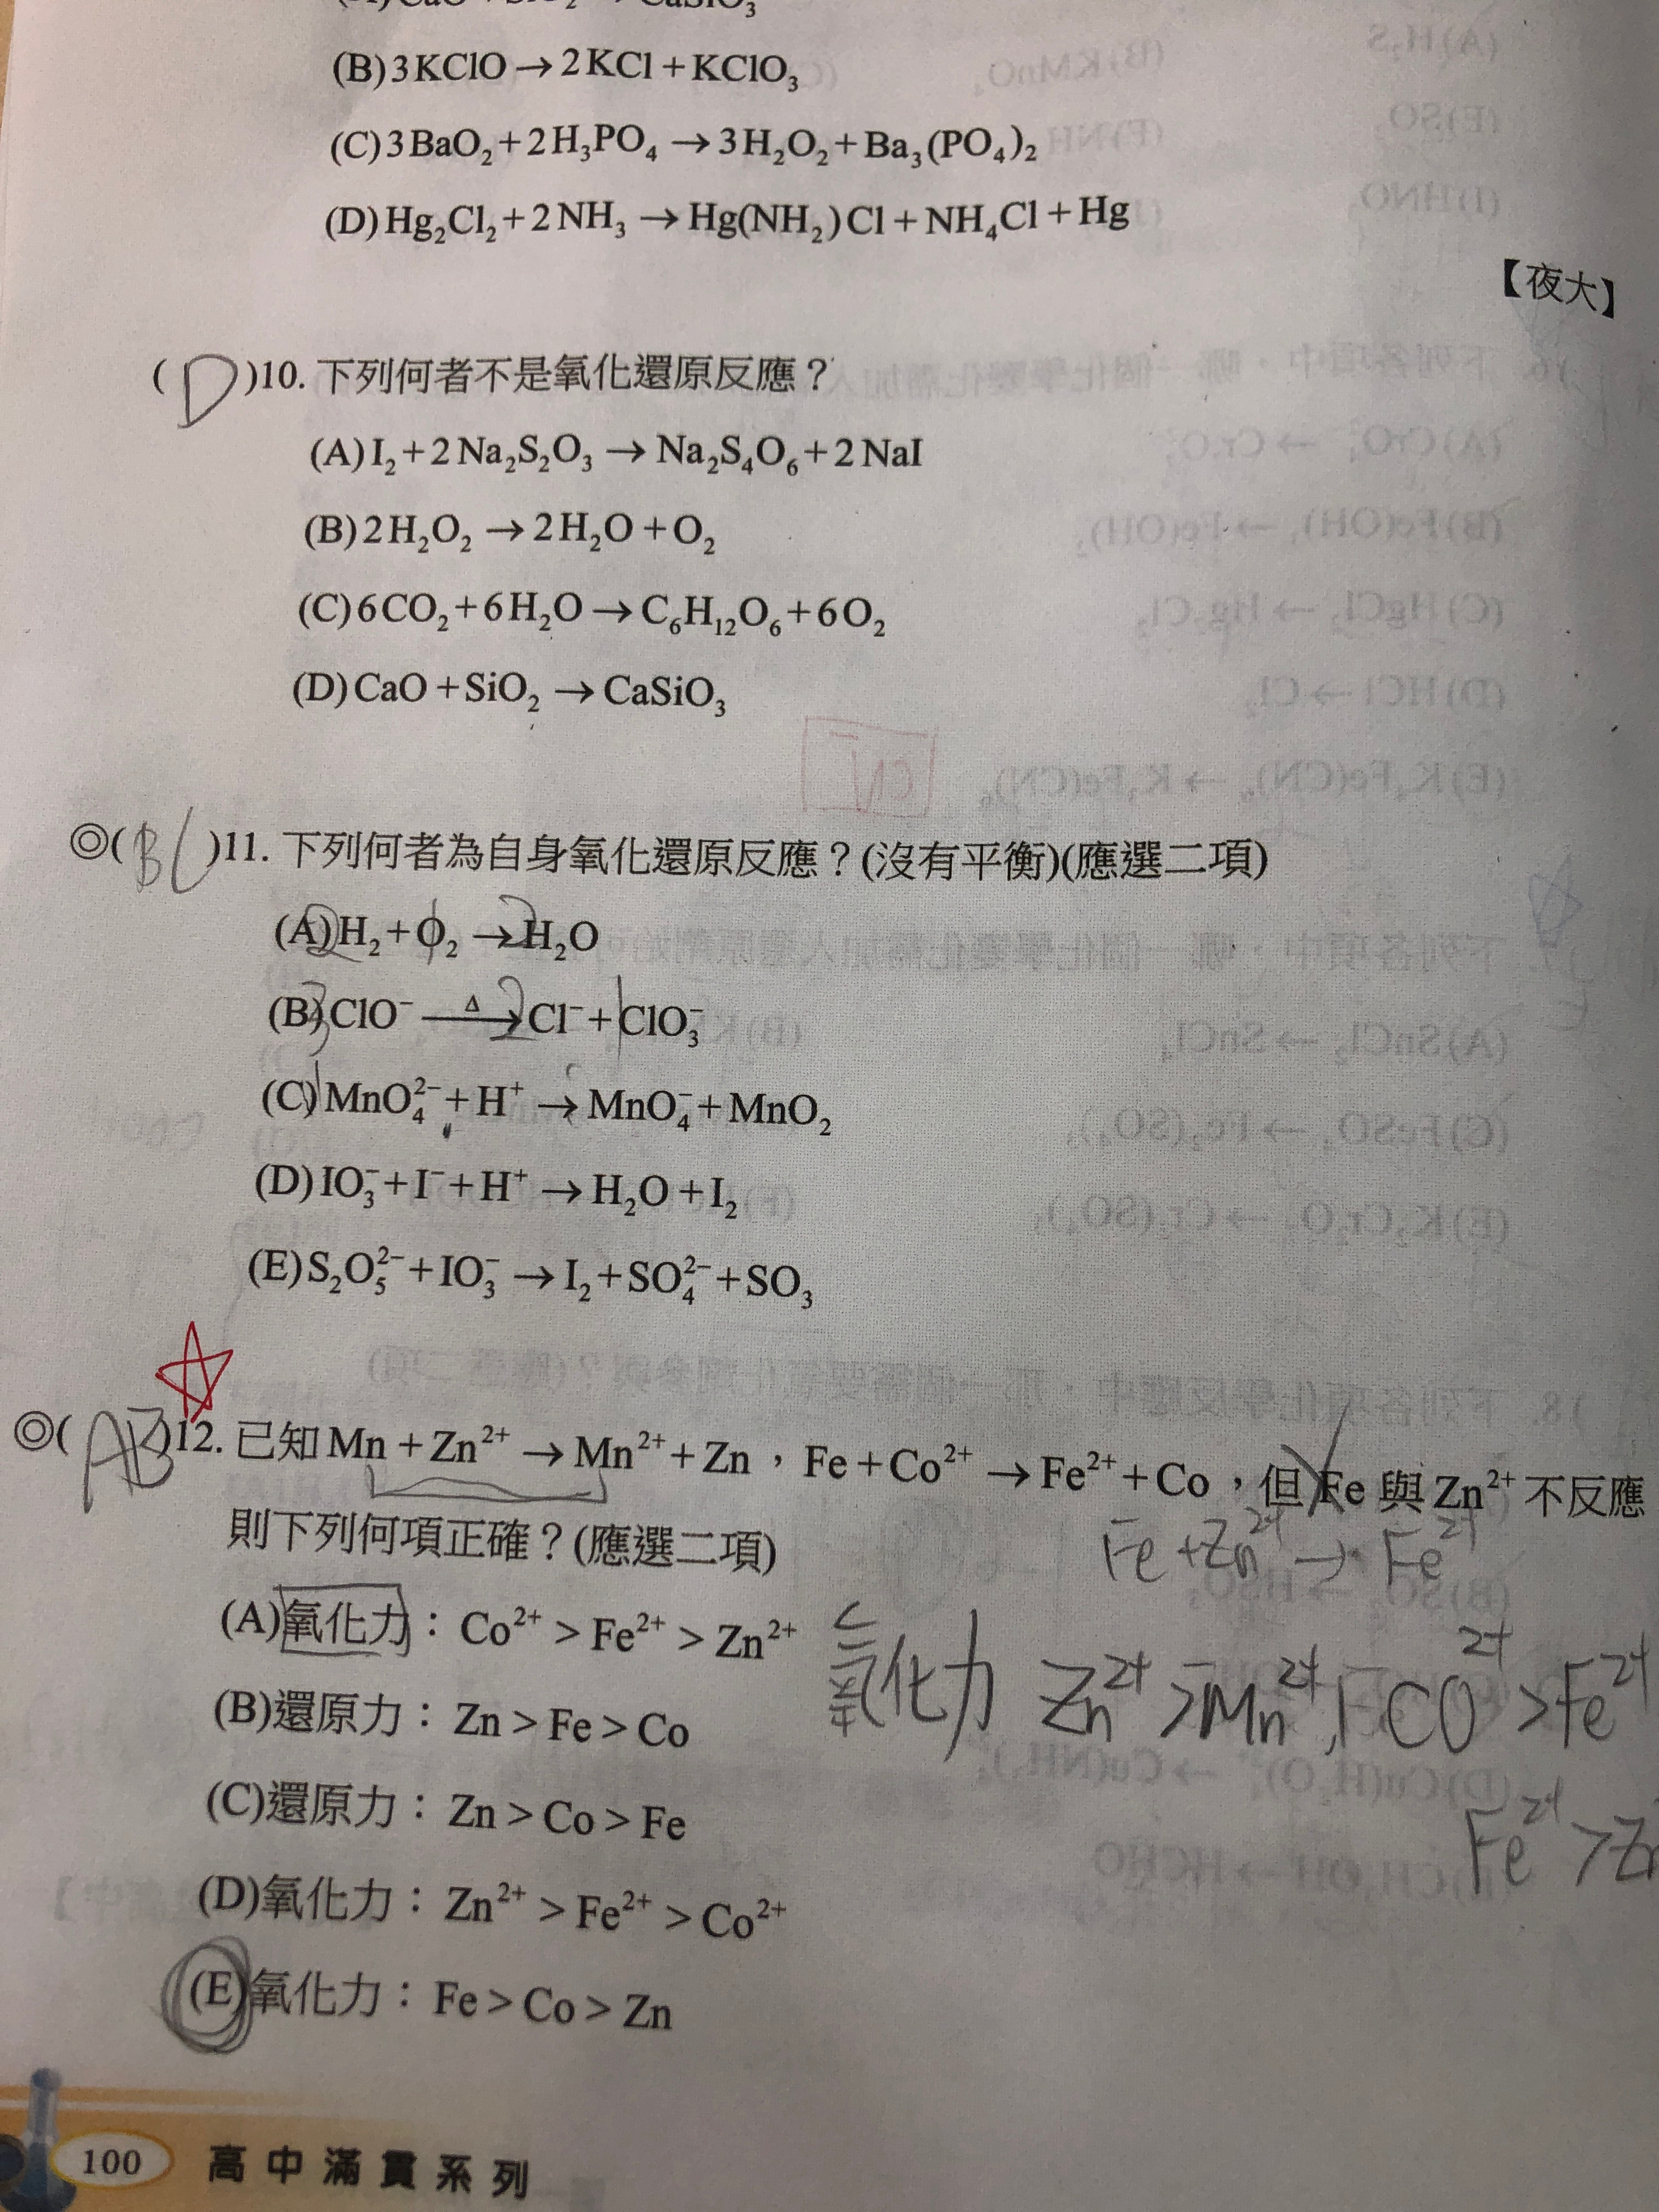 (A) CaO + SiO₂ → CaSiO₃
(B) 3KClO → 2KCl + KClO₃
(C) 3BaO₂ + 2H₃PO₄ → 3H₂O₂ + Ba₃(PO₄)₂
(D) Hg₂Cl₂ + 2NH₃ → Hg(NH₂)Cl + NH₄Cl + Hg
【夜大】
( D )10. 下列何者不是氧化還原反應？
(A) I₂ + 2Na₂S₂O₃ → Na₂S₄O₆ + 2NaI
(B) 2H₂O₂ → 2H₂O + O₂
(C) 6CO₂ + 6H₂O → C₆H₁₂O₆ + 6O₂
(D) CaO + SiO₂ → CaSiO₃
◎( BC )11. 下列何者為自身氧化還原反應？(沒有平衡)(應選二項)
(A) 2 H₂ + 1 O₂ → 2 H₂O
(B) 3 ClO⁻ —Δ→ 2 Cl⁻ + 1 ClO₃⁻
(C) MnO₄²⁻ + H⁺ → MnO₄⁻ + MnO₂
(D) IO₃⁻ + I⁻ + H⁺ → H₂O + I₂
(E) S₂O₅²⁻ + IO₃⁻ → I₂ + SO₄²⁻ + SO₃
◎( AB )12. 已知 Mn + Zn²⁺ → Mn²⁺ + Zn，Fe + Co²⁺ → Fe²⁺ + Co，但 Fe 與 Zn²⁺ 不反應
則下列何項正確？(應選二項)
Fe + Zn²⁺ → Fe²⁺
(A)氧化力：Co²⁺ > Fe²⁺ > Zn²⁺
氧化力 Zn²⁺ > Mn²⁺, CO²⁺ > Fe²⁺
(B)還原力：Zn > Fe > Co
(C)還原力：Zn > Co > Fe
Fe²⁺ > Zn
(D)氧化力：Zn²⁺ > Fe²⁺ > Co²⁺
(E)氧化力：Fe > Co > Zn
100 高中滿貫系列